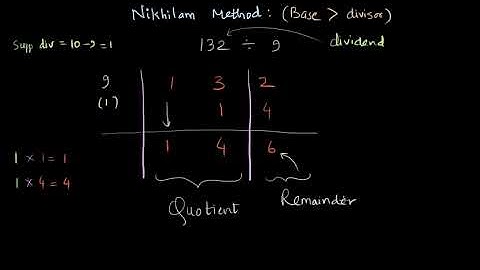 Nikhilam Method: (Base > divisor)
Supp div = 10-9 = 1
132 ÷ 9
dividend
9 1 3 2
(1) 1 4
1 4 6
1 × 1 = 1
1 × 4 = 4
Quotient
Remainder